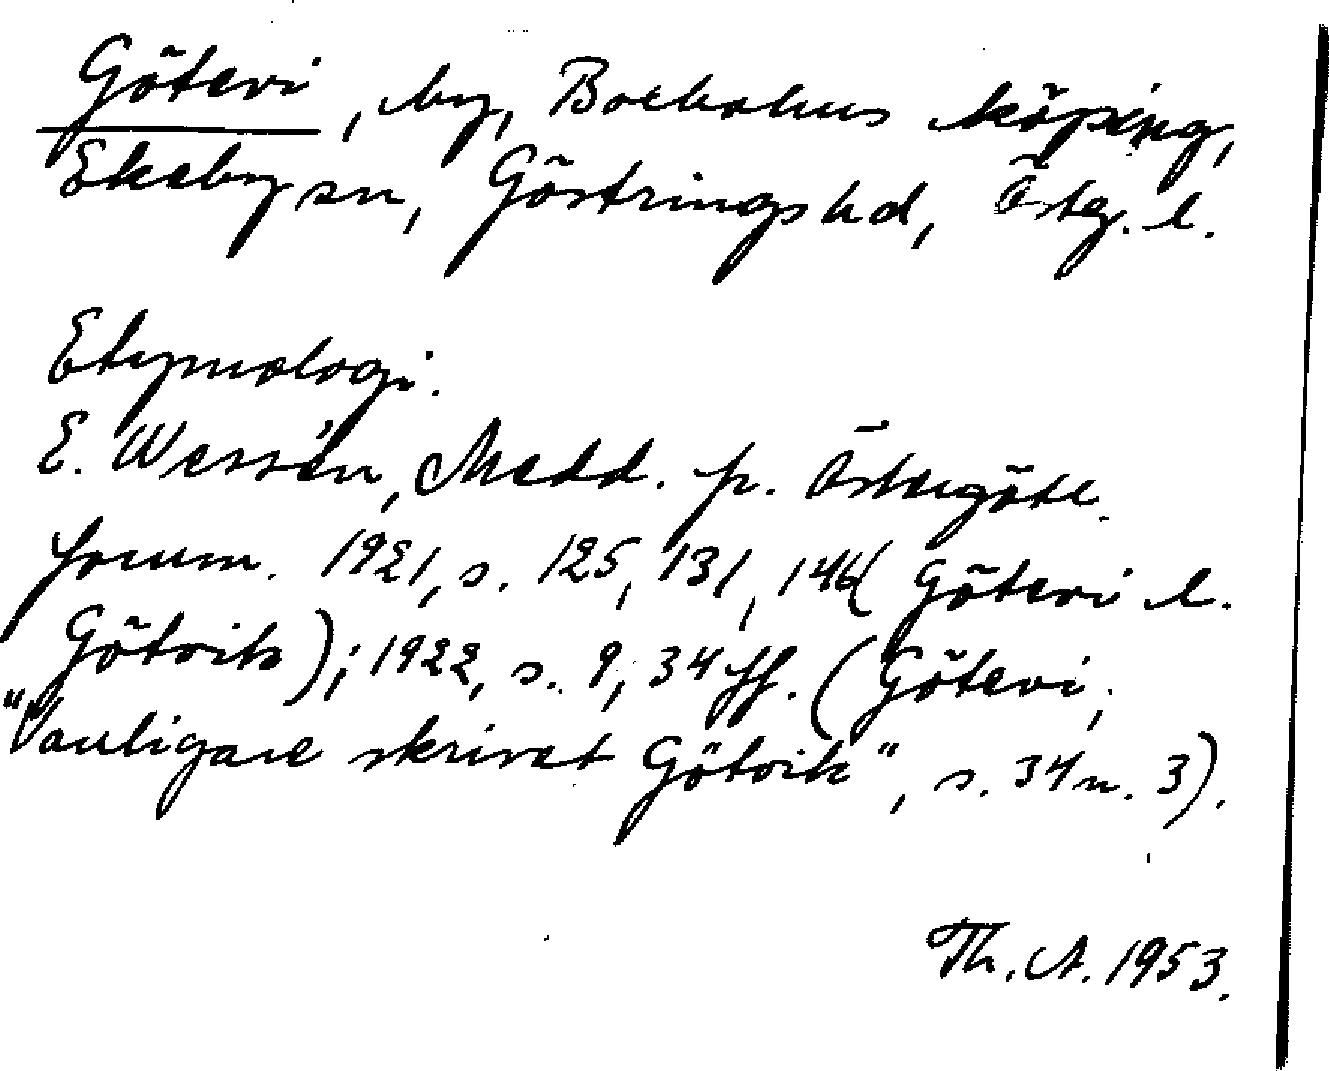 Götevi, by, Boxholms köping,
Ekeby sn, Göstrings hd, Östg. l.
Etymologi.
E. Wessén, Medd. fr. Östergötl.
fornm. 1921, s. 125, 131, 146 (Götevi l.
Götvik); 1922, s. 9, 34 ff. (Götevi,
"vanligare skrivet Götvik", s. 34 n. 3).
Th. A. 1953.